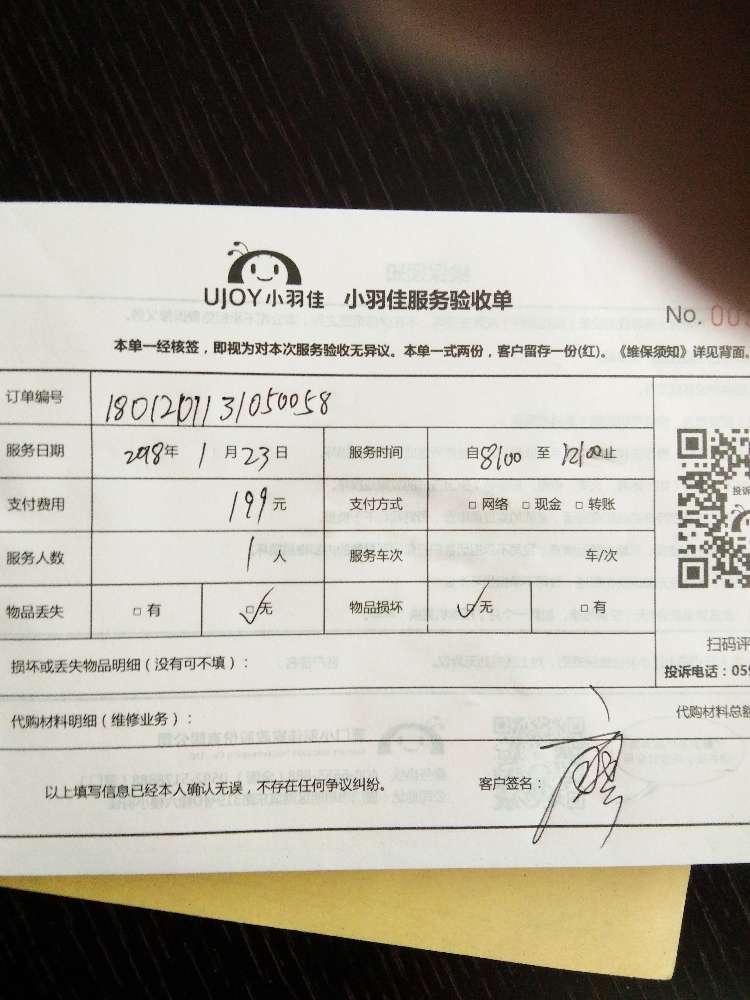 UJOY小羽佳 小羽佳服务验收单
No. 00
本单一经核签，即视为对本次服务验收无异议。本单一式两份，客户留存一份(红)。《维保须知》详见背面。
订单编号 1801201131050058
服务日期 2018年1月23日 服务时间 自8:00至12:00止
支付费用 199元 支付方式 □网络 □现金 □转账
投诉
服务人数 1人 服务车次 车/次
物品丢失 □有 ☑无 物品损坏 ☑无 □有
扫码评
损坏或丢失物品明细（没有可不填）：
投诉电话：059
代购材料明细（维修业务）：
代购材料总额
以上填写信息已经本人确认无误，不存在任何争议纠纷。 客户签名：